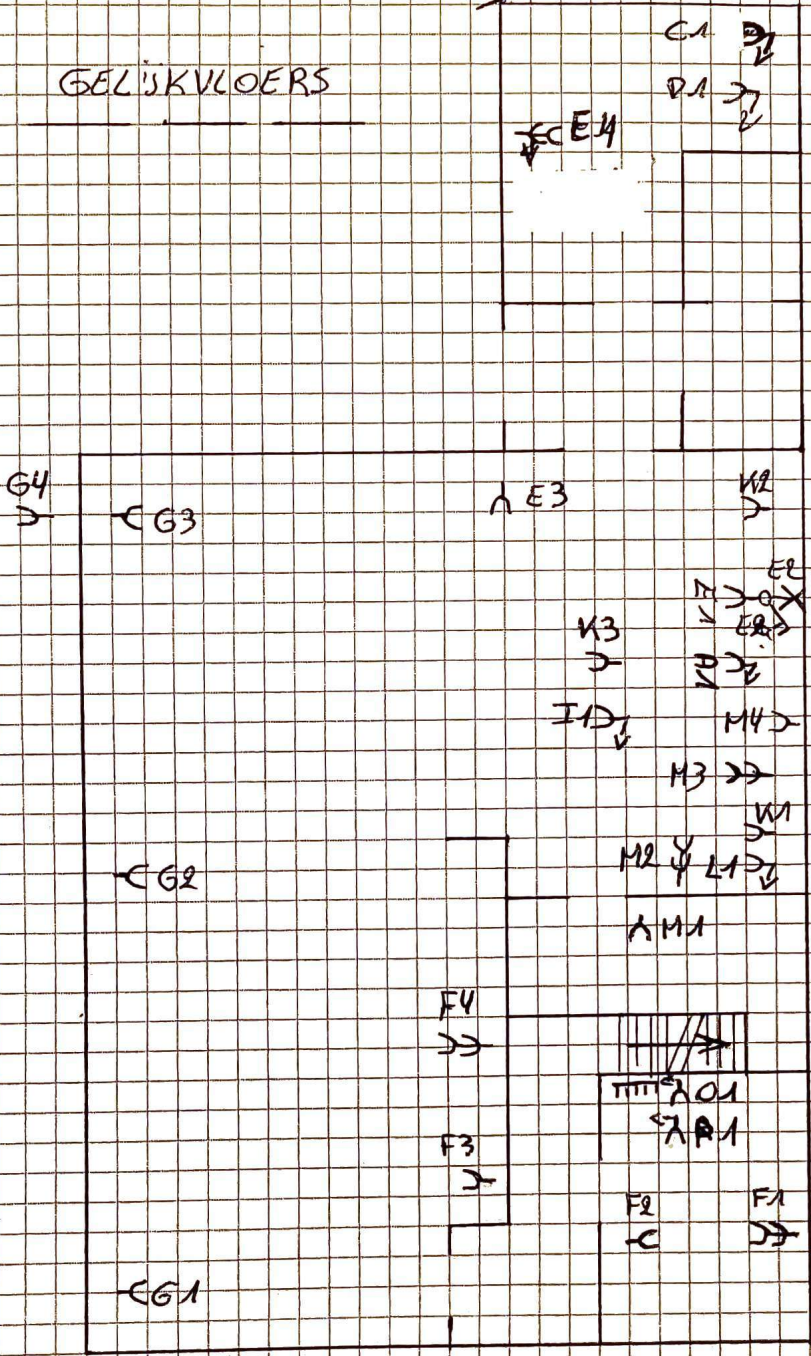 GELIJKVLOERS
C1
D1
E4
G4
G3
E3
K2
E2
K3
A1
I1
M4
M3
K1
M2
L1
G2
M1
F4
O1
F3
F2
F1
G1